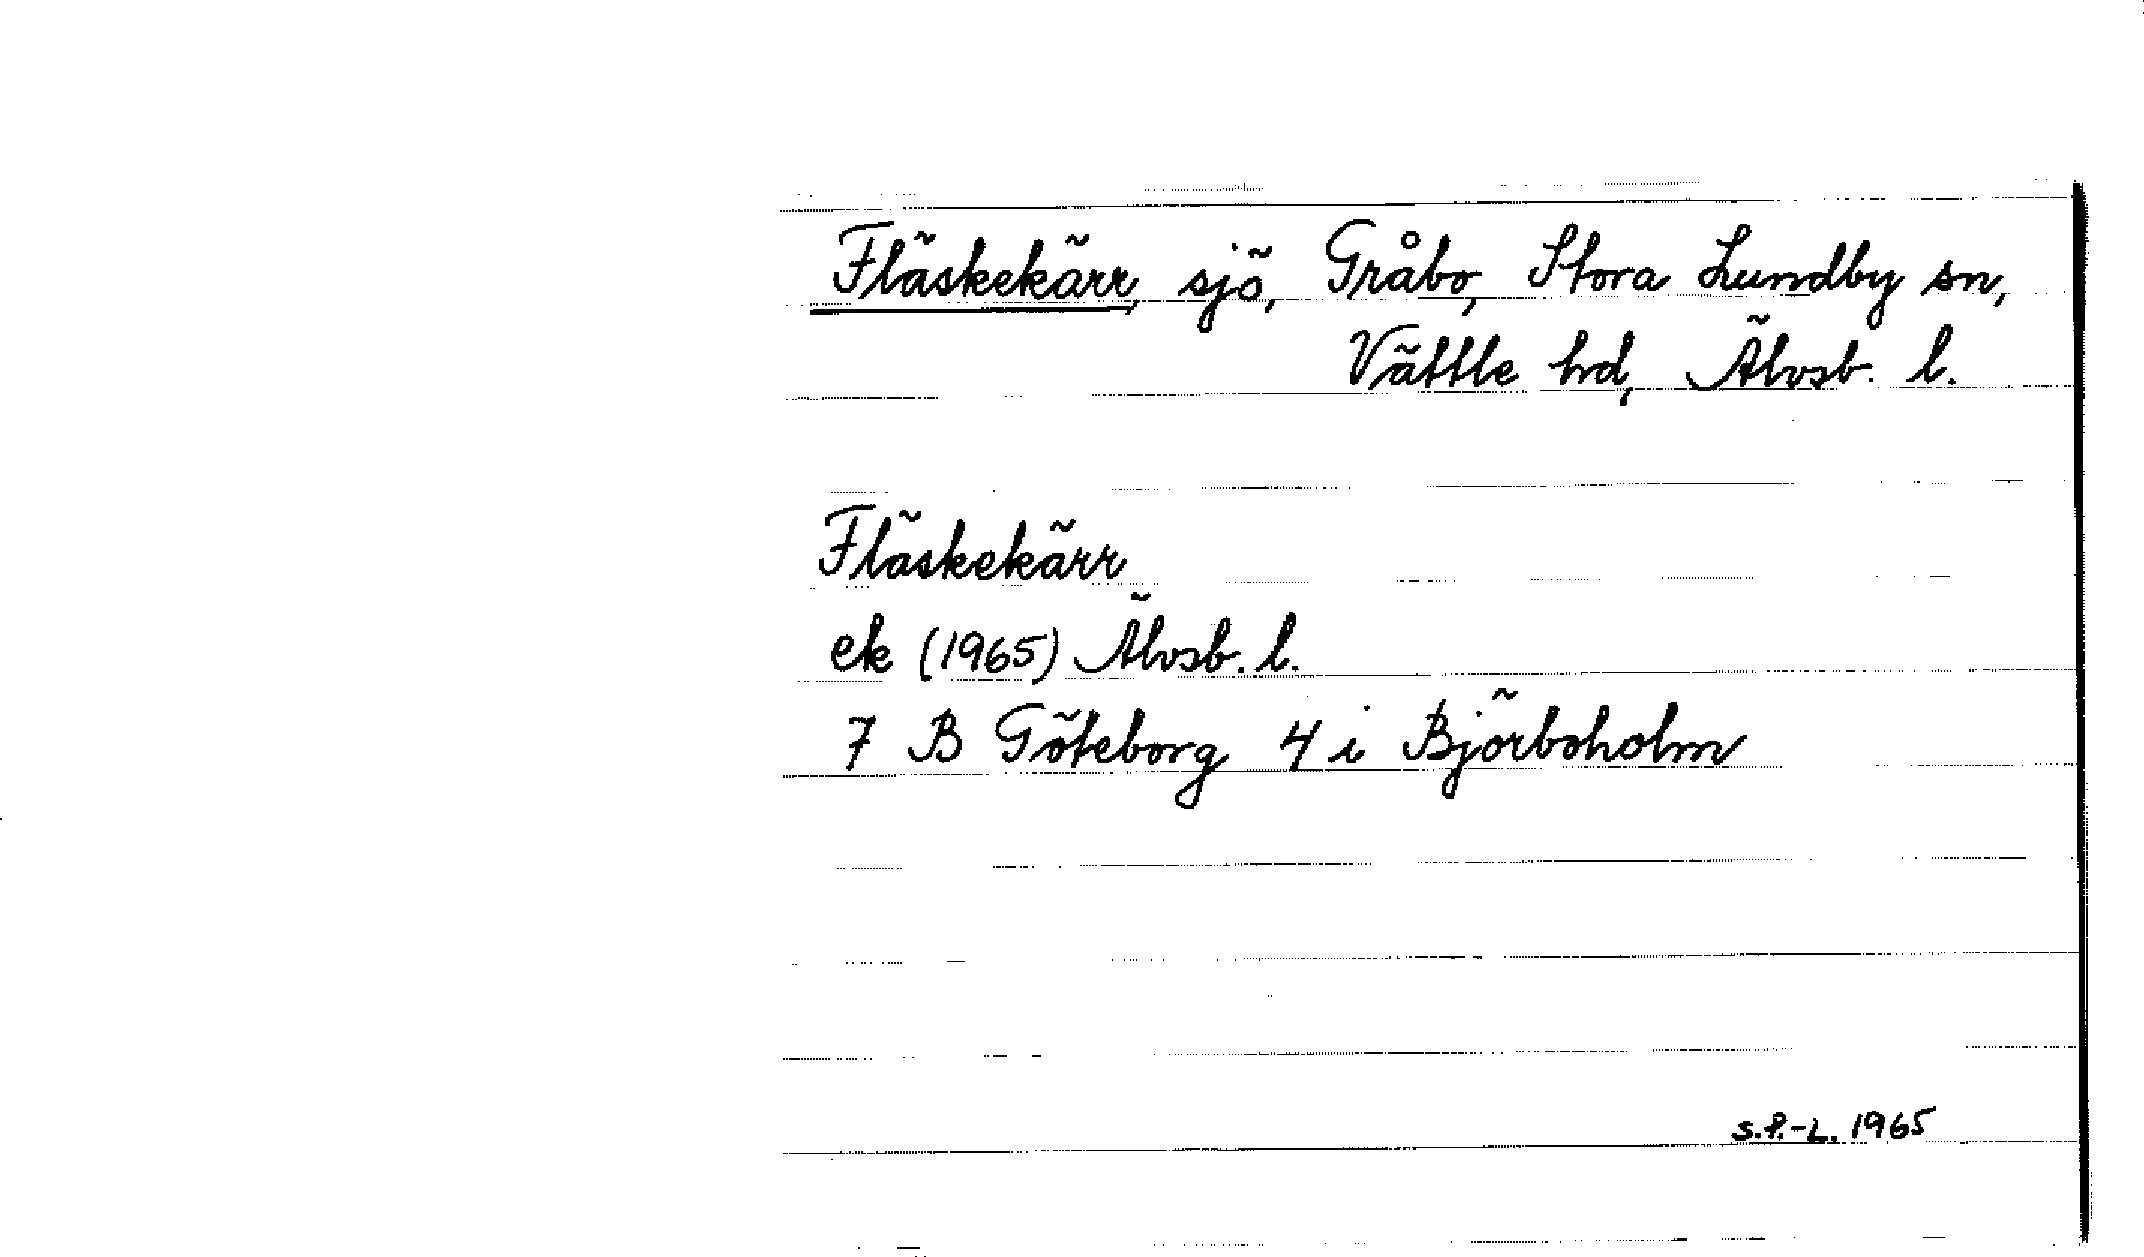 Fläskekärr, sjö, Gråbo, Stora Lundby sn,
Vättle hd, Älvsb. l.
Fläskekärr
ek (1965) Älvsb. l.
7 B Göteborg 4 i Björboholm
S.P.-L. 1965